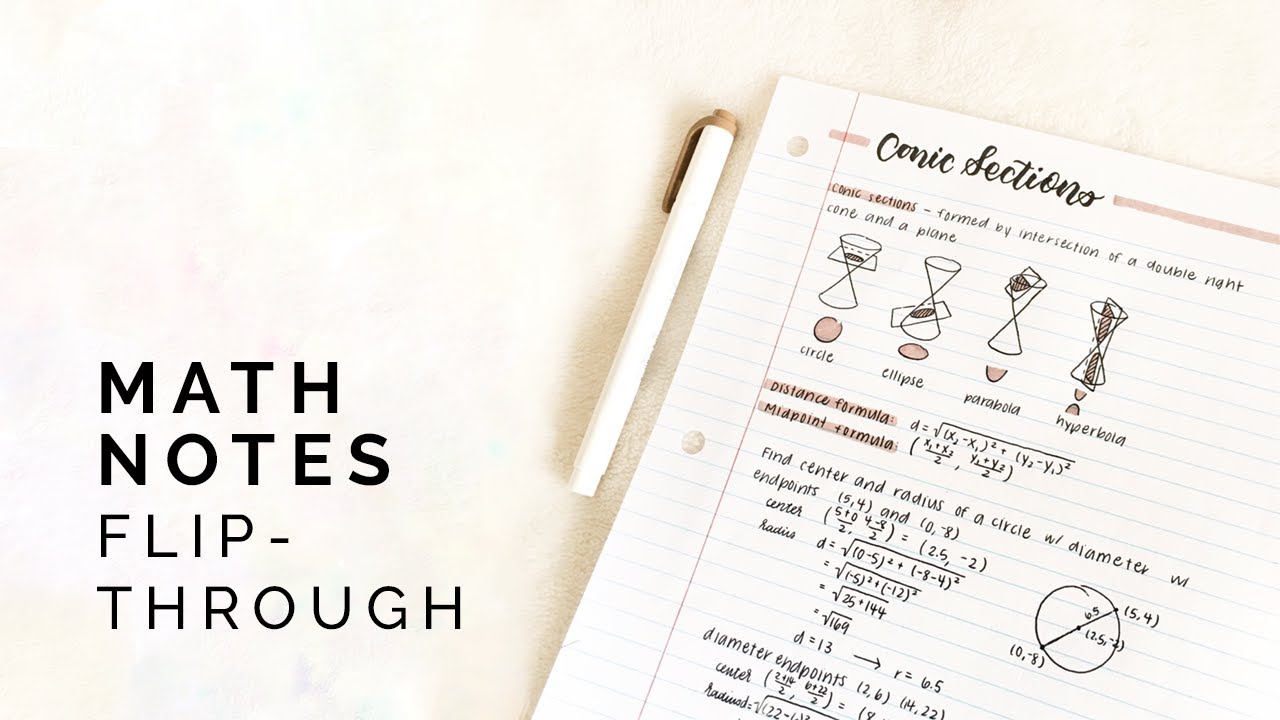 MATH
NOTES
FLIP-
THROUGH
Conic Sections
conic sections - formed by intersection of a double right
cone and a plane
circle
ellipse
parabola
hyperbola
Distance formula: d = √(x₂-x₁)² + (y₂-y₁)²
Midpoint formula: (x₁+x₂/2, y₁+y₂/2)
Find center and radius of a circle w/ diameter w/
endpoints (5,4) and (0,-8)
center (5+0/2, 4-8/2) = (2.5, -2)
radius d = √(0-5)² + (-8-4)²
= √(-5)² + (-12)²
= √25+144
= √169
d = 13 → r = 6.5
6.5
(5,4)
(2.5,-2)
(0,-8)
diameter endpoints (2,6) (14,22)
center (2+14/2, 6+22/2) = (8,
radius d = √(22-